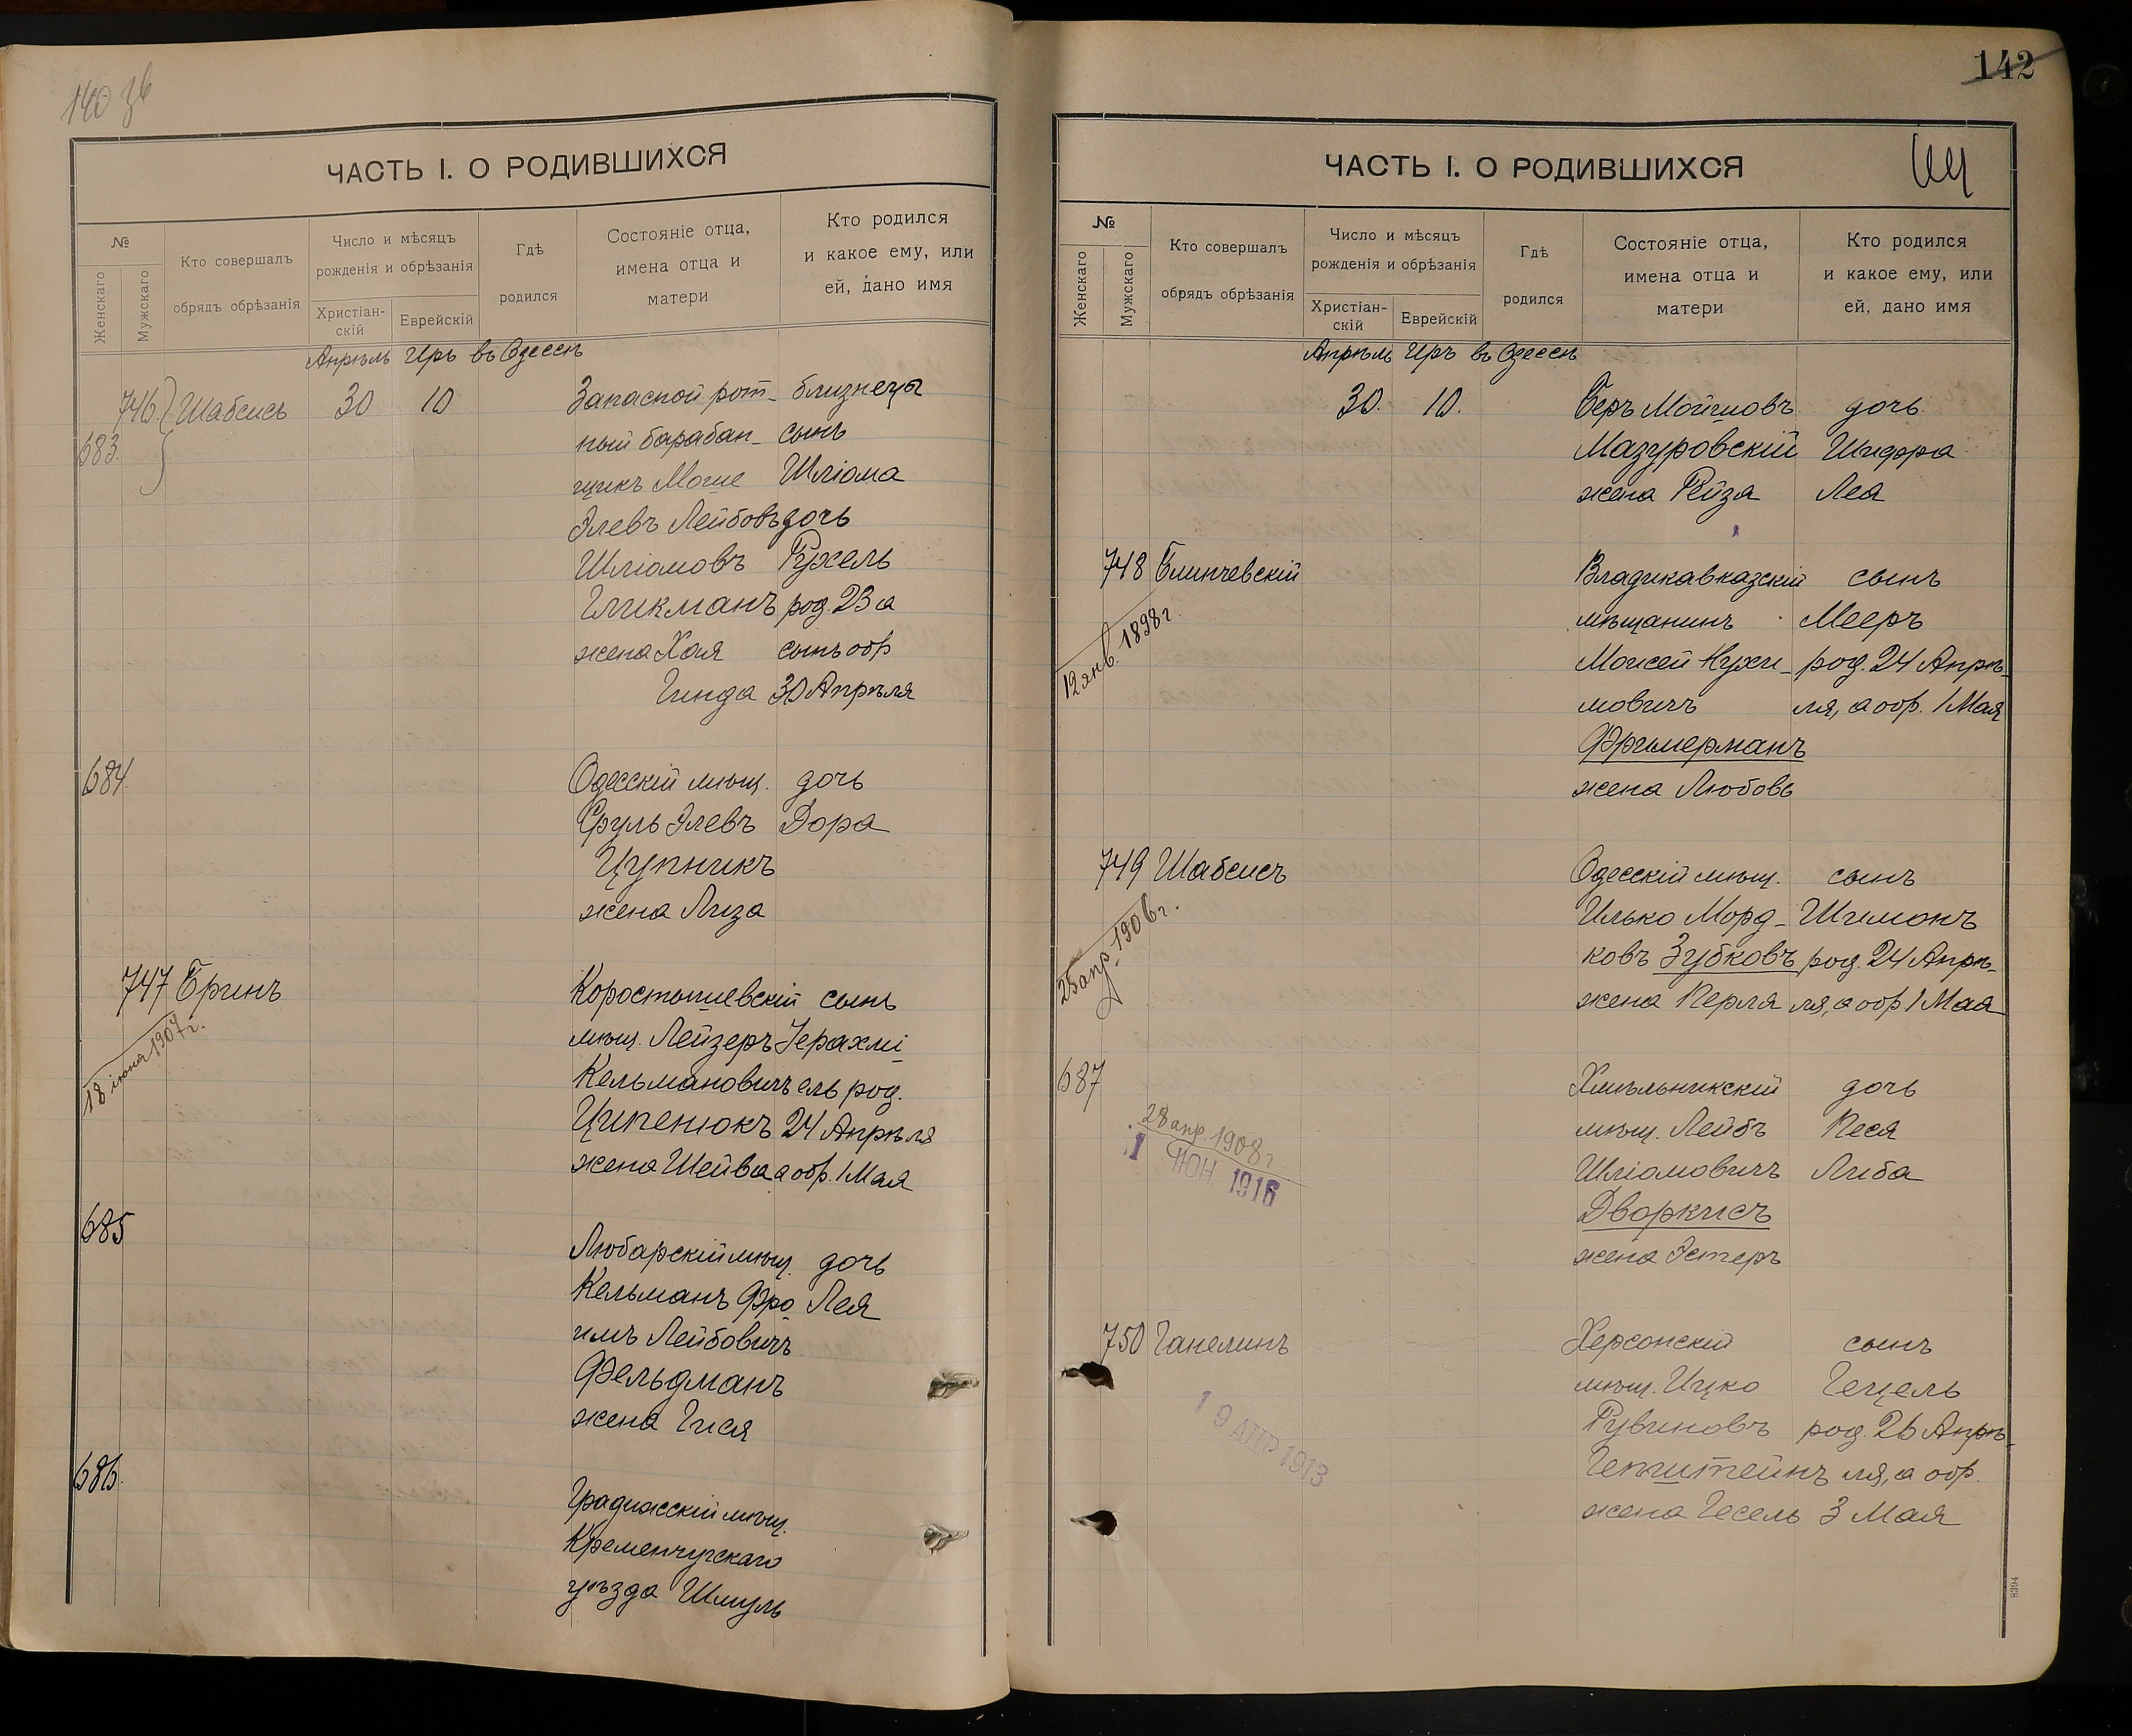 140 зв
ЧАСТЬ I. О РОДИВШИХСЯ
№
Женскаго
Мужскаго
Кто совершалъ
обрядъ обрѣзанія
Число и мѣсяцъ
рожденія и обрѣзанія
Христіан-
скій
Еврейскій
Гдѣ
родился
Состояніе отца,
имена отца и
матери
Кто родился
и какое ему, или
ей, дано имя
Апрѣль Иръ въ Одессѣ
746. Шабсисъ 30 10 Запасной рот- близнецы
683. ный барабан- сынъ
щикъ Моше Шліома
Элевъ Лейбовъ дочь
Шліомовъ Рухель
Гликманъ род. 23 а
жена Хая сынъ обр
Гинда 30 Апрѣля
684. Одесскій мѣщ. дочь
Сруль Элевъ Дора
Цупникъ
жена Лиза
747 Бринъ Коростышевскій сынъ
18 іюня 1907 г. мѣщ. Лейзеръ Іерахмі-
Кельмановичъ ель род.
Ципенюкъ 24 Апрѣля
жена Шейва а обр. 1 Мая
685 Любарскій мѣщ. дочь
Кельманъ Фро- Лея
имъ Лейбовичъ
Фельдманъ
жена Гися
686. Градижскій мѣщ.
Кременчугскаго
уѣзда Шмуль
142
ЧАСТЬ I. О РОДИВШИХСЯ
№
Женскаго
Мужскаго
Кто совершалъ
обрядъ обрѣзанія
Число и мѣсяцъ
рожденія и обрѣзанія
Христіан-
скій
Еврейскій
Гдѣ
родился
Состояніе отца,
имена отца и
матери
Кто родился
и какое ему, или
ей, дано имя
Апрѣль Иръ въ Одессѣ
30. 10. Беръ Мойшовъ дочь
Мазуровскій Шифра
жена Рейза Леа
748 Блинчевскій Владикавказскій сынъ
12 янв. 1898 г мѣщанинъ Мееръ
Моисей Нухи- род. 24 Апрѣ-
мовичъ ля, а обр. 1 Мая
Фримерманъ
жена Любовь
749 Шабсисъ Одесскій мѣщ. сынъ
25 апр. 1906 г. Илько Морд- Шимонъ
ковъ Зубковъ род. 24 Апрѣ-
жена Перля ля, а обр 1 Мая
687 Хмѣльникскій дочь
28 апр. 1908 г мѣщ. Лейбъ Песя
1 ІЮН. 1916 Шліомовичъ Либа
Дворкисъ
жена Эстеръ
750 Ганелинъ Херсонскій сынъ
мѣщ. Ицко Гецель
19 АПР 1913 Рувиновъ род. 26 Апрѣ-
Гепштейнъ ля, а обр.
жена Гесель 3 Мая
8394